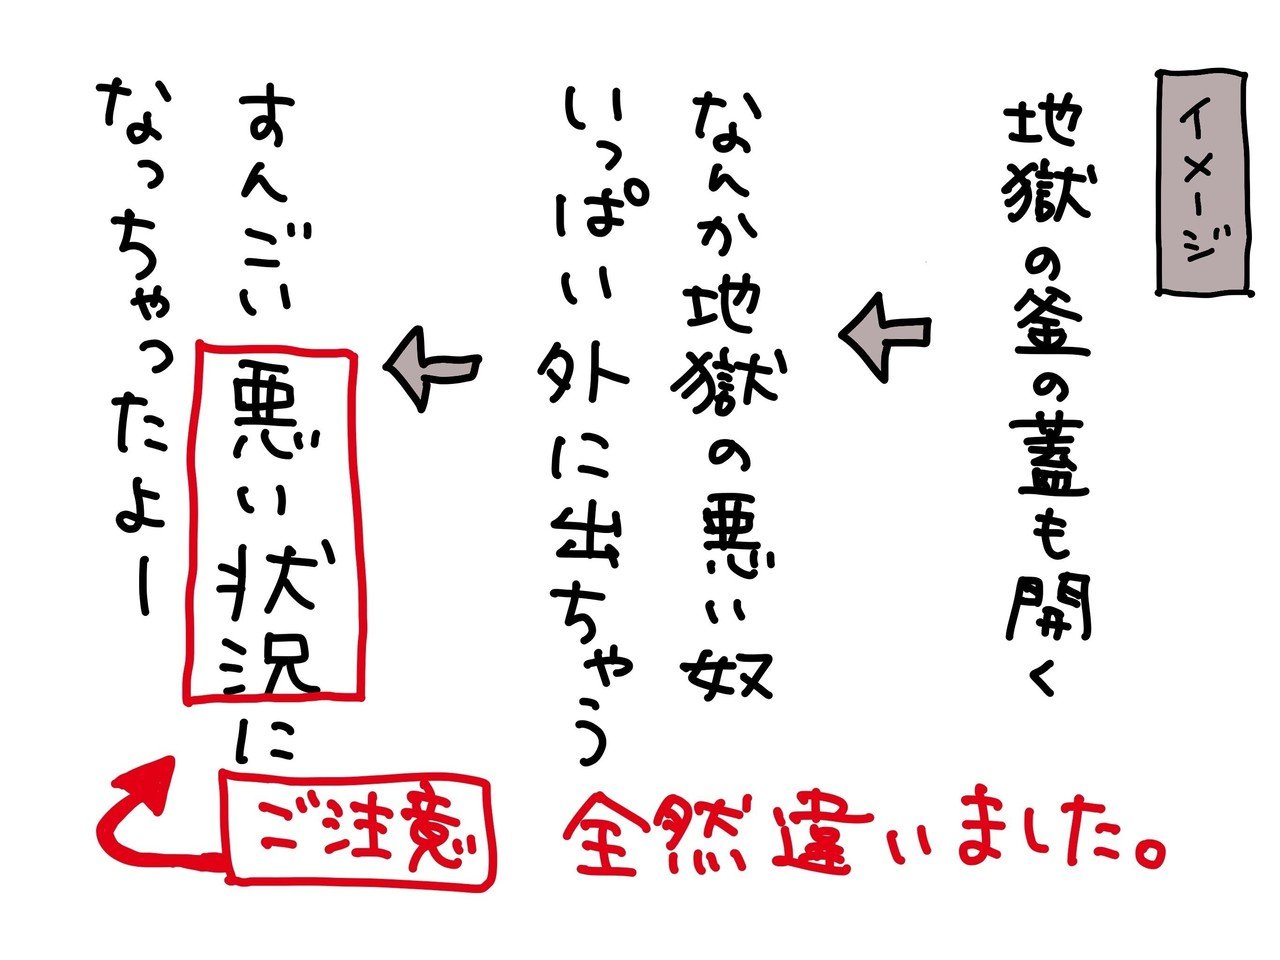 イメージ
地獄の釜の蓋も開く
なんか地獄の悪い奴
いっぱい外に出ちゃう
すんごい悪い状況に
なっちゃったよー
ご注意
全然違いました。